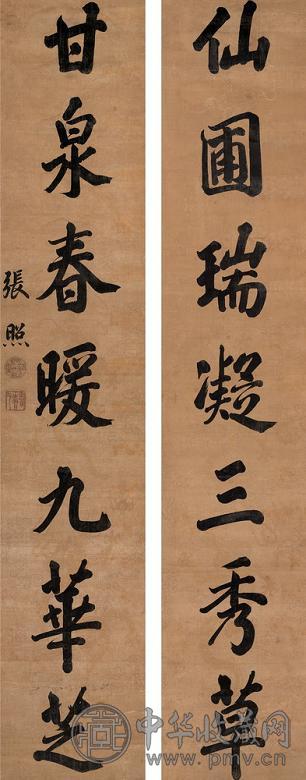 仙圃瑞凝三秀草
甘泉春暖九華芝
張照
中华收藏网
www.pmv.cn